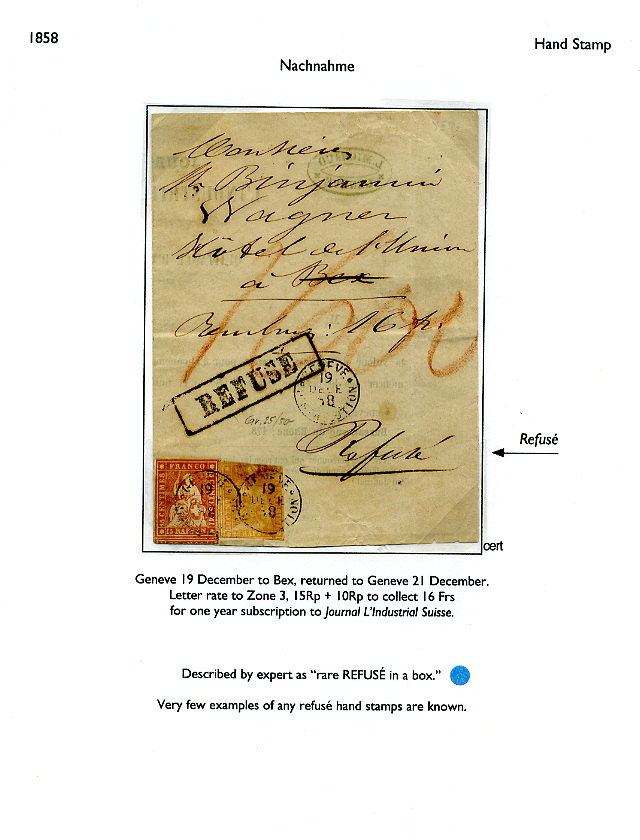 1858
Hand Stamp
Nachnahme
Monsieur
Binjamin
Wagner
Hôtel de l'Union
à Bex
16 fr.
1600
REFUSÉ
GENEVE
19
DECE
58
Gr. 25/50
Refusé
Refusé
FRANCO
15 CENTIMES
15 RAPPEN
19
19
DECE
58
cert
Geneve 19 December to Bex, returned to Geneve 21 December.
Letter rate to Zone 3, 15Rp + 10Rp to collect 16 Frs
for one year subscription to Journal L'Industrial Suisse.
Described by expert as "rare REFUSÉ in a box."
Very few examples of any refusé hand stamps are known.